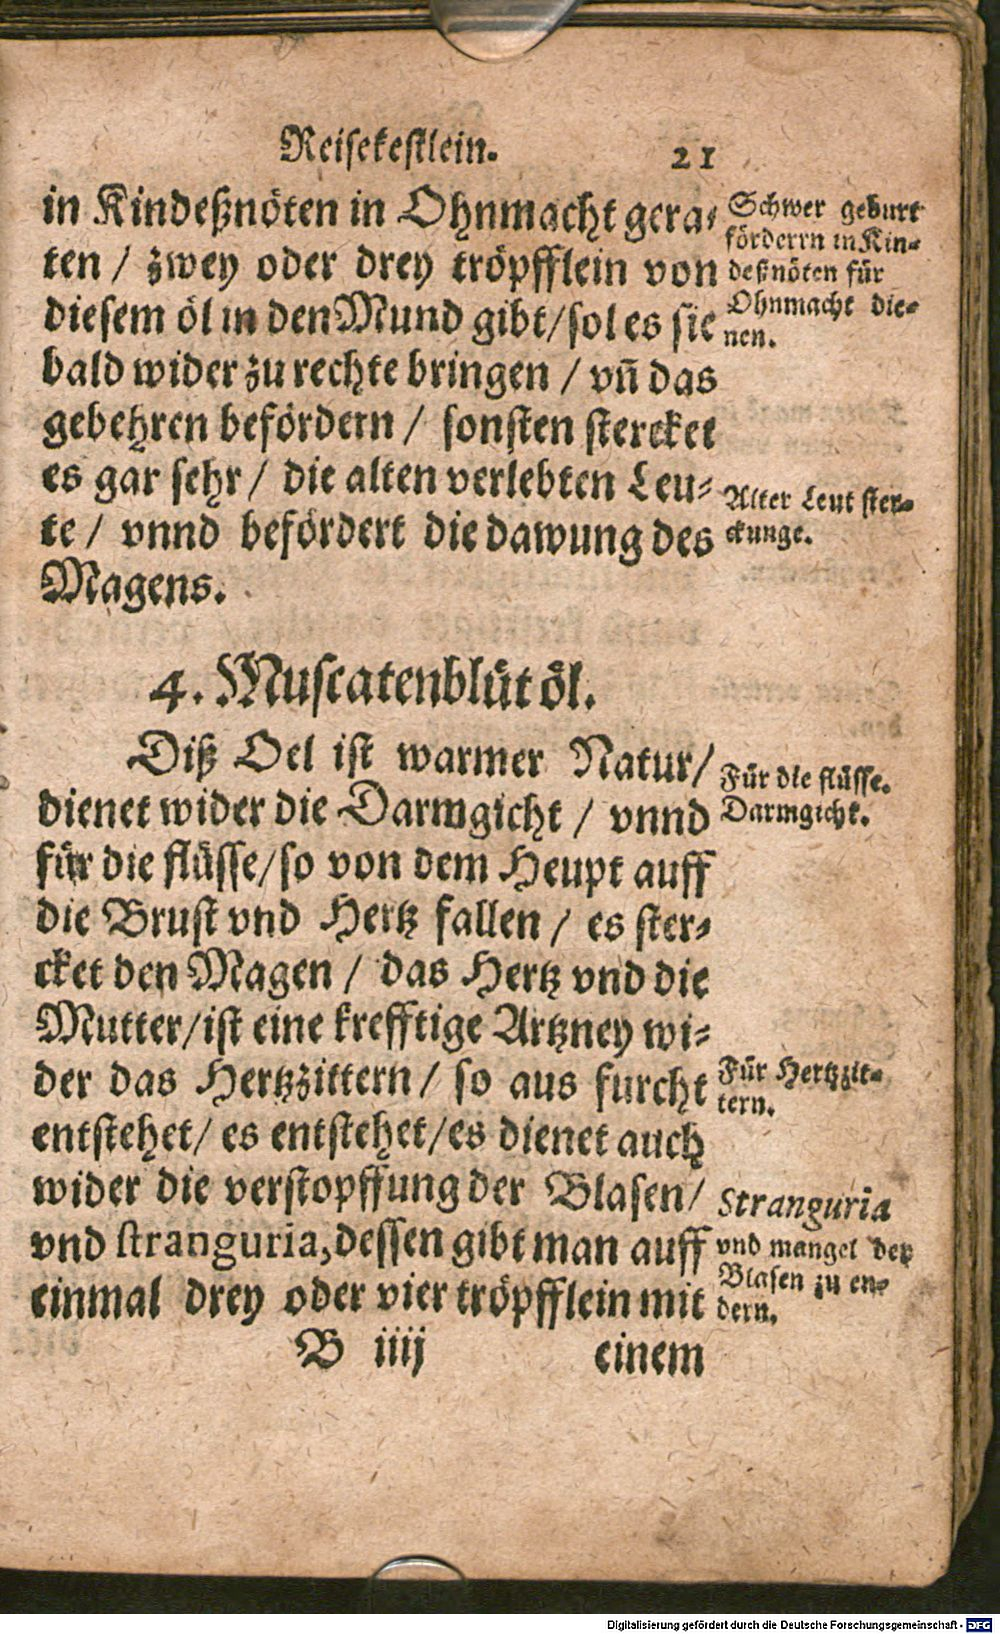 Reisekestlein. 21
in Kindeßnöten in Ohnmacht gera⸗
ten / zwey oder drey tröpfflein von
diesem öl in den Mund gibt/sol es sie
bald wider zu rechte bringen / vñ das
gebehren befördern / sonsten stercket
es gar sehr / die alten verlebten Leu⸗
te / vnnd befördert die dawung des
Magens.
Schwer geburt
förderrn in Kin⸗
deßnöten für
Ohnmacht die⸗
nen.
Alter Leut ster⸗
ckunge.
4. Muscatenblüt öl.
Diß Oel ist warmer Natur/
dienet wider die Darmgicht / vnnd
für die flüsse/so von dem Heupt auff
die Brust vnd Hertz fallen / es ster⸗
cket den Magen / das Hertz vnd die
Mutter/ist eine krefftige Artzney wi⸗
der das Hertzzittern/ so aus furcht
entstehet/ es entstehet/es dienet auch
wider die verstopffung der Blasen/
vnd stranguria, dessen gibt man auff
einmal drey oder vier tröpfflein mit
Für die flüsse.
Darmgicht.
Für Hertzzit⸗
tern.
Stranguria
vnd mangel der
Blasen zu en⸗
dern.
B iiij einem
Digitalisierung gefördert durch die Deutsche Forschungsgemeinschaft - DFG